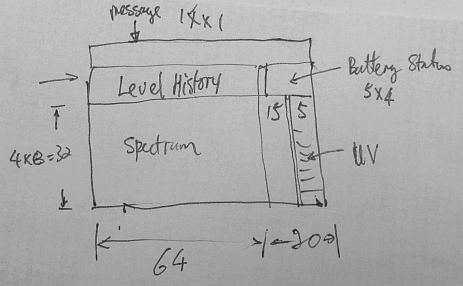 message 14x1
Level History
Battery Status
5x4
15 5
4x8=32
Spectrum
UV
64
20